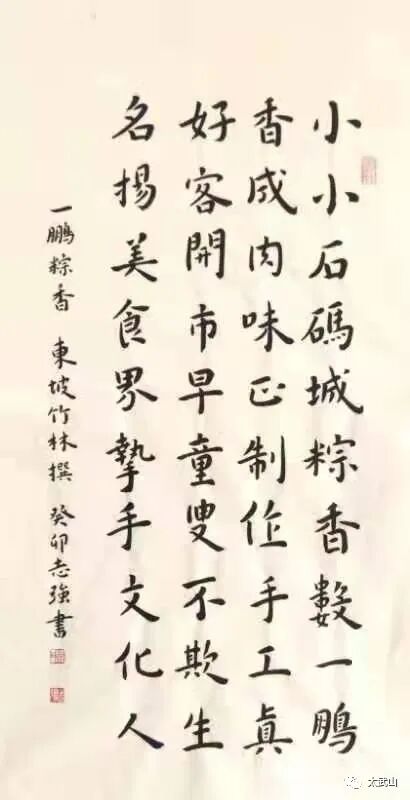 小小石碼城粽香數一鵬
香咸肉味正制作手工眞
好客開市早童叟不欺生
名揚美食界摯手文化人
一鵬粽香 東坡竹林撰 癸卯志強書
太武山